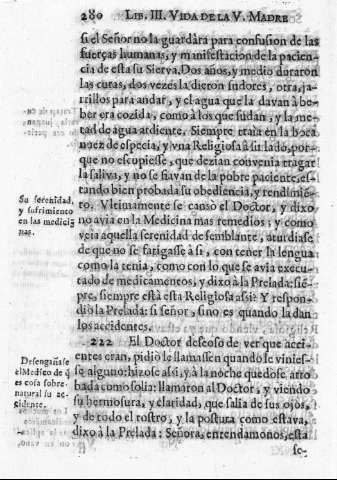 280 LIB. III. VIDA DE LA V. MADRE
si el Señor no la guardàra para confusion de las
fuerças humanas, y manifestacion de la pacien-
cia de esta su Sierva. Dos años, y medio duraron
las curas, dos vezes la dieron sudores, otra, ja-
rrillos para andar, y el agua que la davan à be-
ber era cozida, como à los que sudan, y la me-
tad de agua ardiente. Siempre traìa en la boca
nuez de especia, y vna Religiosa à su lado, por-
que no escupiesse, que dezian convenia tragar
la saliva, y no se fiavan de la pobre paciente, es-
tando bien probada su obediencia, y rendimiē-
to. Vltimamente se cansò el Doctor, y dixo
no avia en la Medicina mas remedios; y como
veia aquella serenidad de semblante, aturdiase
de que no se fatigasse assi, con tener la lengua
como la tenia, como con lo que se avia execu-
tado de medicamentos, y dixo à la Prelada: siē-
pre, siempre està esta Religiosa assi? Y respon-
diò la Prelada: si señor, sino es quando la dan
los accidentes.
Su serenidad,
y sufrimiento
en las medici
nas.
222 El Doctor deseoso de ver que acci-
dentes eran, pidiò le llamassen quando le vinies-
se alguno: hizose assi, y à la noche quedose arro
bada como solia: llamaron al Doctor, y viendo
su hermosura, y claridad, que salia de sus ojos,
y de todo el rostro, y la postura como estava,
dixo à la Prelada: Señora, entendamonos, esta
se-
Desengañase
el Medico de q̄
es cosa sobre-
natural su ac-
cidente.